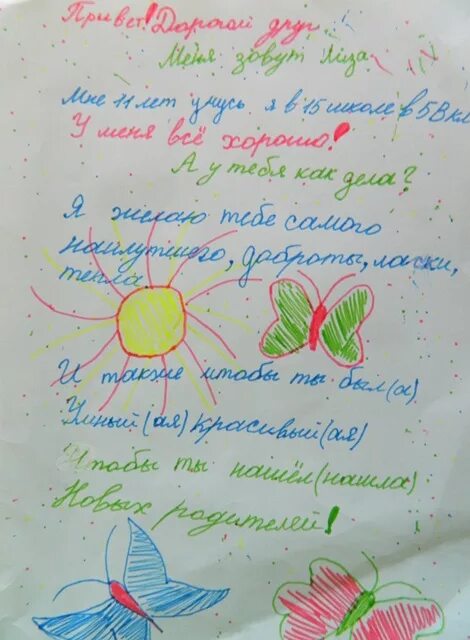 Привет! Дорогой друг
Меня зовут Лиза
Мне 11 лет учусь я в 15 школе в 5В кл
У меня всё хорошо!
А у тебя как дела?
Я желаю тебе самого
наилутшего, доброты, ласки,
тепла
И также чтобы ты был(а)
Умный(ая) красивый(ая)
Чтобы ты нашёл(нашла)
Новых родителей!